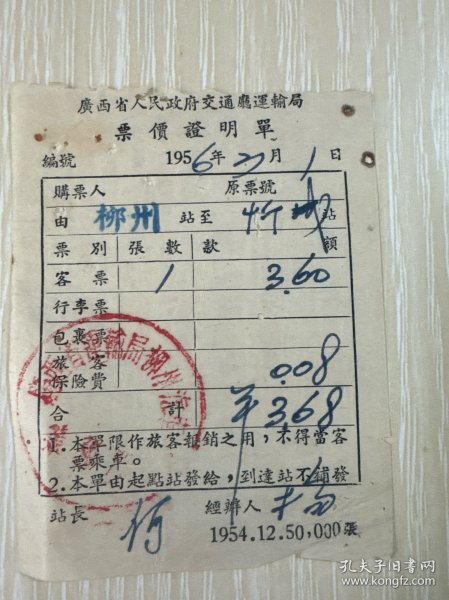 廣西省人民政府交通廳運輸局
票價證明單
編號 1956年 月1日
購票人 原票號
由 柳州 站至 忻城 站
票別 張數 款額
客票 1 3.60
行李票
包裹票
旅客保險費 0.08
合計 ¥3.68
1.本單限作旅客報銷之用，不得當客
票乘車。
2.本單由起點站發給，到達站不補發
站長 何 經辦人
1954.12.50,000張
孔夫子旧书网
book.kongfz.com